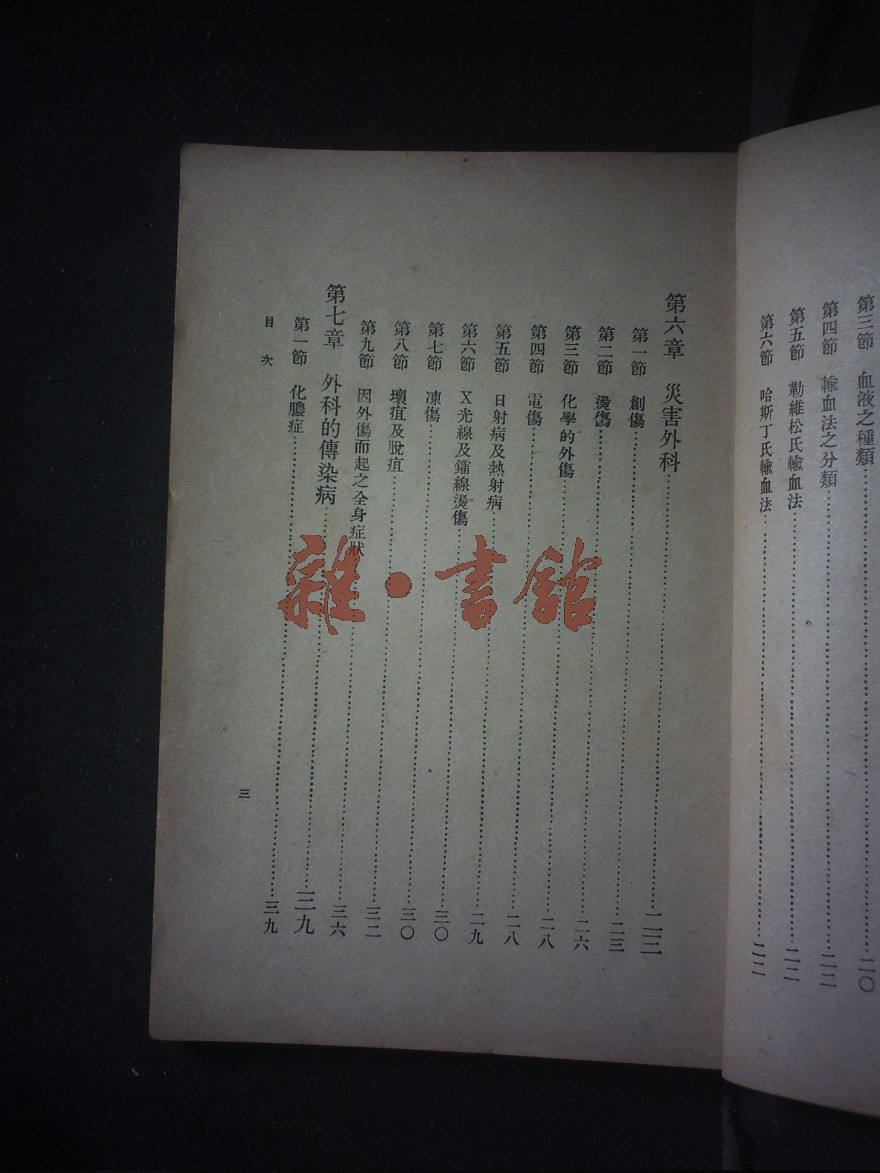 第三節　血液之種類……二〇
第四節　輸血法之分類……二二
第五節　勒維松氏輸血法……二二
第六節　哈斯丁氏輸血法……二二
第六章　災害外科……二三
第一節　創傷……二三
第二節　燙傷……二六
第三節　化學的外傷……二八
第四節　電傷……二八
第五節　日射病及熱射病……二九
第六節　X光線及鐳線燙傷……三〇
第七節　凍傷……三〇
第八節　壞疽及脫疽……三二
第九節　因外傷而起之全身症狀……三六
第七章　外科的傳染病……三九
第一節　化膿症……三九
目次
三
雜·書館